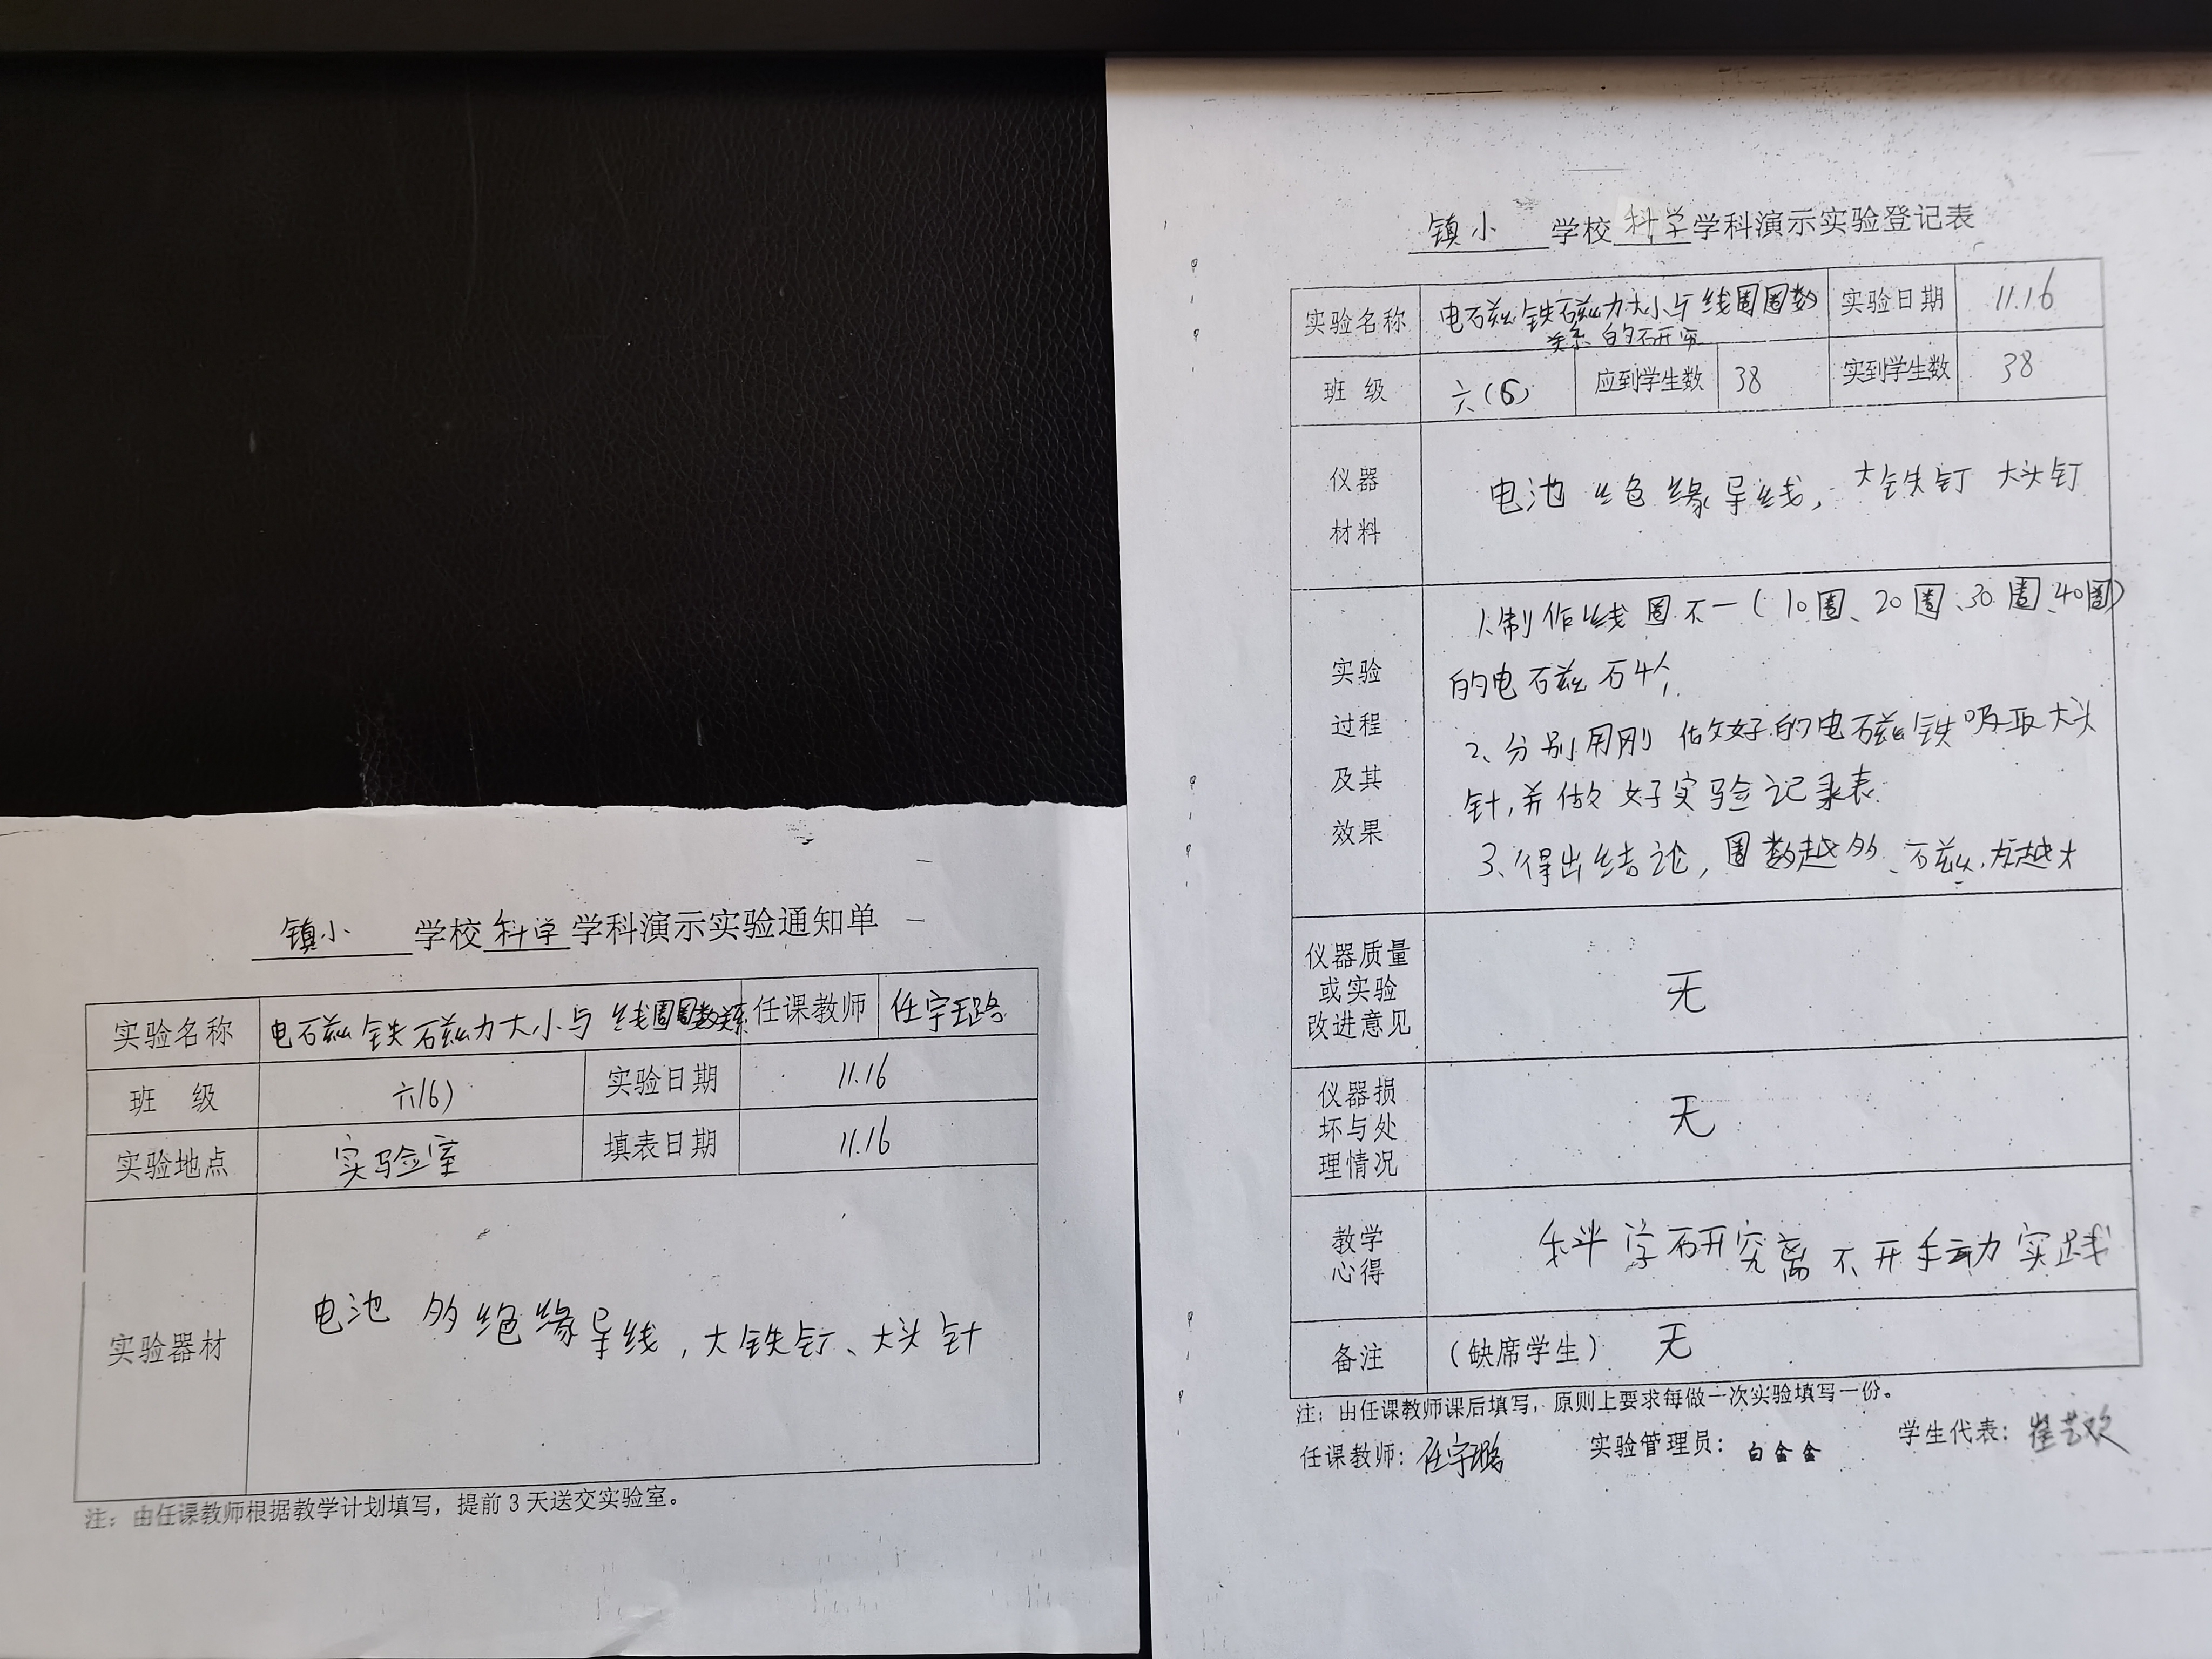 镇小 学校 科学 学科演示实验通知单
实验名称 电磁铁磁力大小与线圈圈数关系 任课教师 任宇璐
班 级 六(6) 实验日期 11.16
实验地点 实验室 填表日期 11.16
实验器材 电池 多绝缘导线,大铁钉、大头针
注:由任课教师根据教学计划填写,提前3天送交实验室。
镇小 学校 科学 学科演示实验登记表
实验名称 电磁铁磁力大小与线圈圈数
关系的研究 实验日期 11.16
班 级 六(6) 应到学生数 38 实到学生数 38
仪器
材料
电池 绝缘导线,大铁钉 大头钉
实验
过程
及其
效果
1.制作线圈不一(10圈、20圈、30圈、40圈)
的电磁石4个
2、分别用刚做好的电磁铁吸取大头
针,并做好实验记录表.
3、得出结论,圈数越多、磁力越大
仪器质量
或实验
改进意见
无
仪器损
坏与处
理情况
无
教学
心得
科学研究离不开手动实践
备注 (缺席学生) 无
注:由任课教师课后填写,原则上要求每做一次实验填写一份。
任课教师:任宇璐 实验管理员:白金金 学生代表:崔艺欢